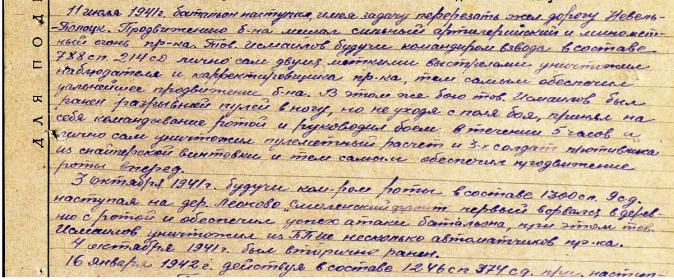 ДЛЯ ПОД
11 июля 1941г. батальон наступал, имея задачу перерезать жел. дорогу Невель-
-Полоцк. Продвижению б-на мешал сильный артиллерийский и миномет-
ный огонь пр-ка. Тов. Исмаилов будучи командиром взвода в составе
788 сп. 214 сд лично сам двумя меткими выстрелами уничтожил
наблюдателя и карректировщика пр-ка, тем самым обеспечил
дальнейшее продвижение б-на. В этом же бою тов. Исмаилов был
ранен разрывной пулей в ногу, но не уходя с поля боя, принял на
себя командование ротой и руководил боем в течении 5 часов и
лично сам уничтожил пулеметный расчет и 3-х солдат противника
из снайперской винтовки и тем самым обеспечил продвижение
роты вперед.
3 октября 1941г. будучи ком-ром роты в составе 1300 сп. 9 сд.
наступая на дер. Леоново "Смоленский фронт" первый ворвался в дерев-
ню с ротой и обеспечил успех атаки батальона, при этом тов.
Исмаилов уничтожил из ППШ несколько автоматчиков пр-ка.
4 октября 1941г. был вторично ранен.
16 января 1942г. действуя в составе 1246 сп 374 сд. при наступ-